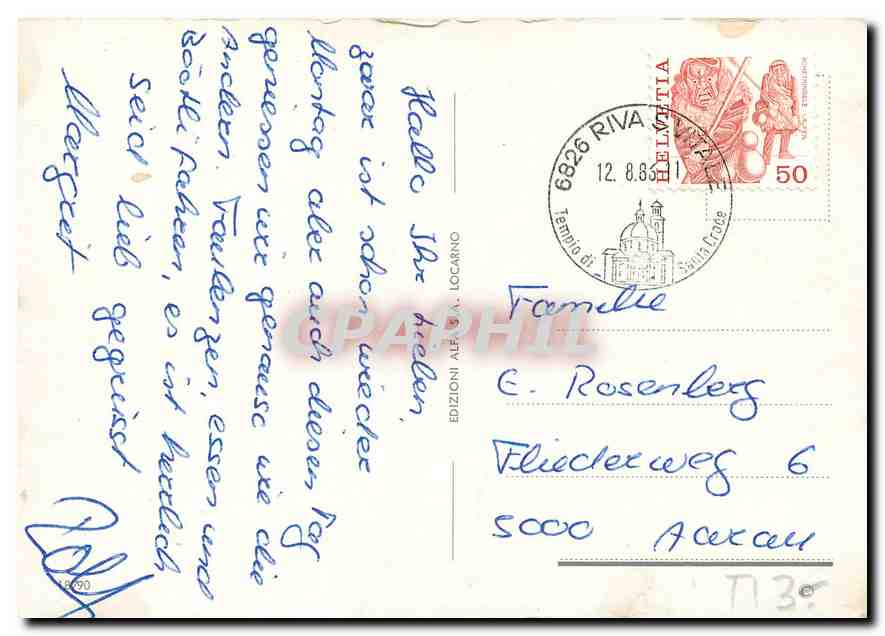 Hallo Ihr Lieben,
zwar ist schon wieder
Montag aber auch diesen Tag
geniessen wir genauso wie die
Andern. Faulenzen, essen und
Böötli fahren, es ist herrlich
Seid lieb gegrüsst
Margret
Rolf
18290
EDIZIONI ALFA S.A. LOCARNO
HELVETIA
50
6826 RIVA S. VITALE
12. 8.83
Tempio di Santa Croce
CPAPHIL
Familie
E. Rosenberg
Fliederweg 6
5000 Aarau
3.-